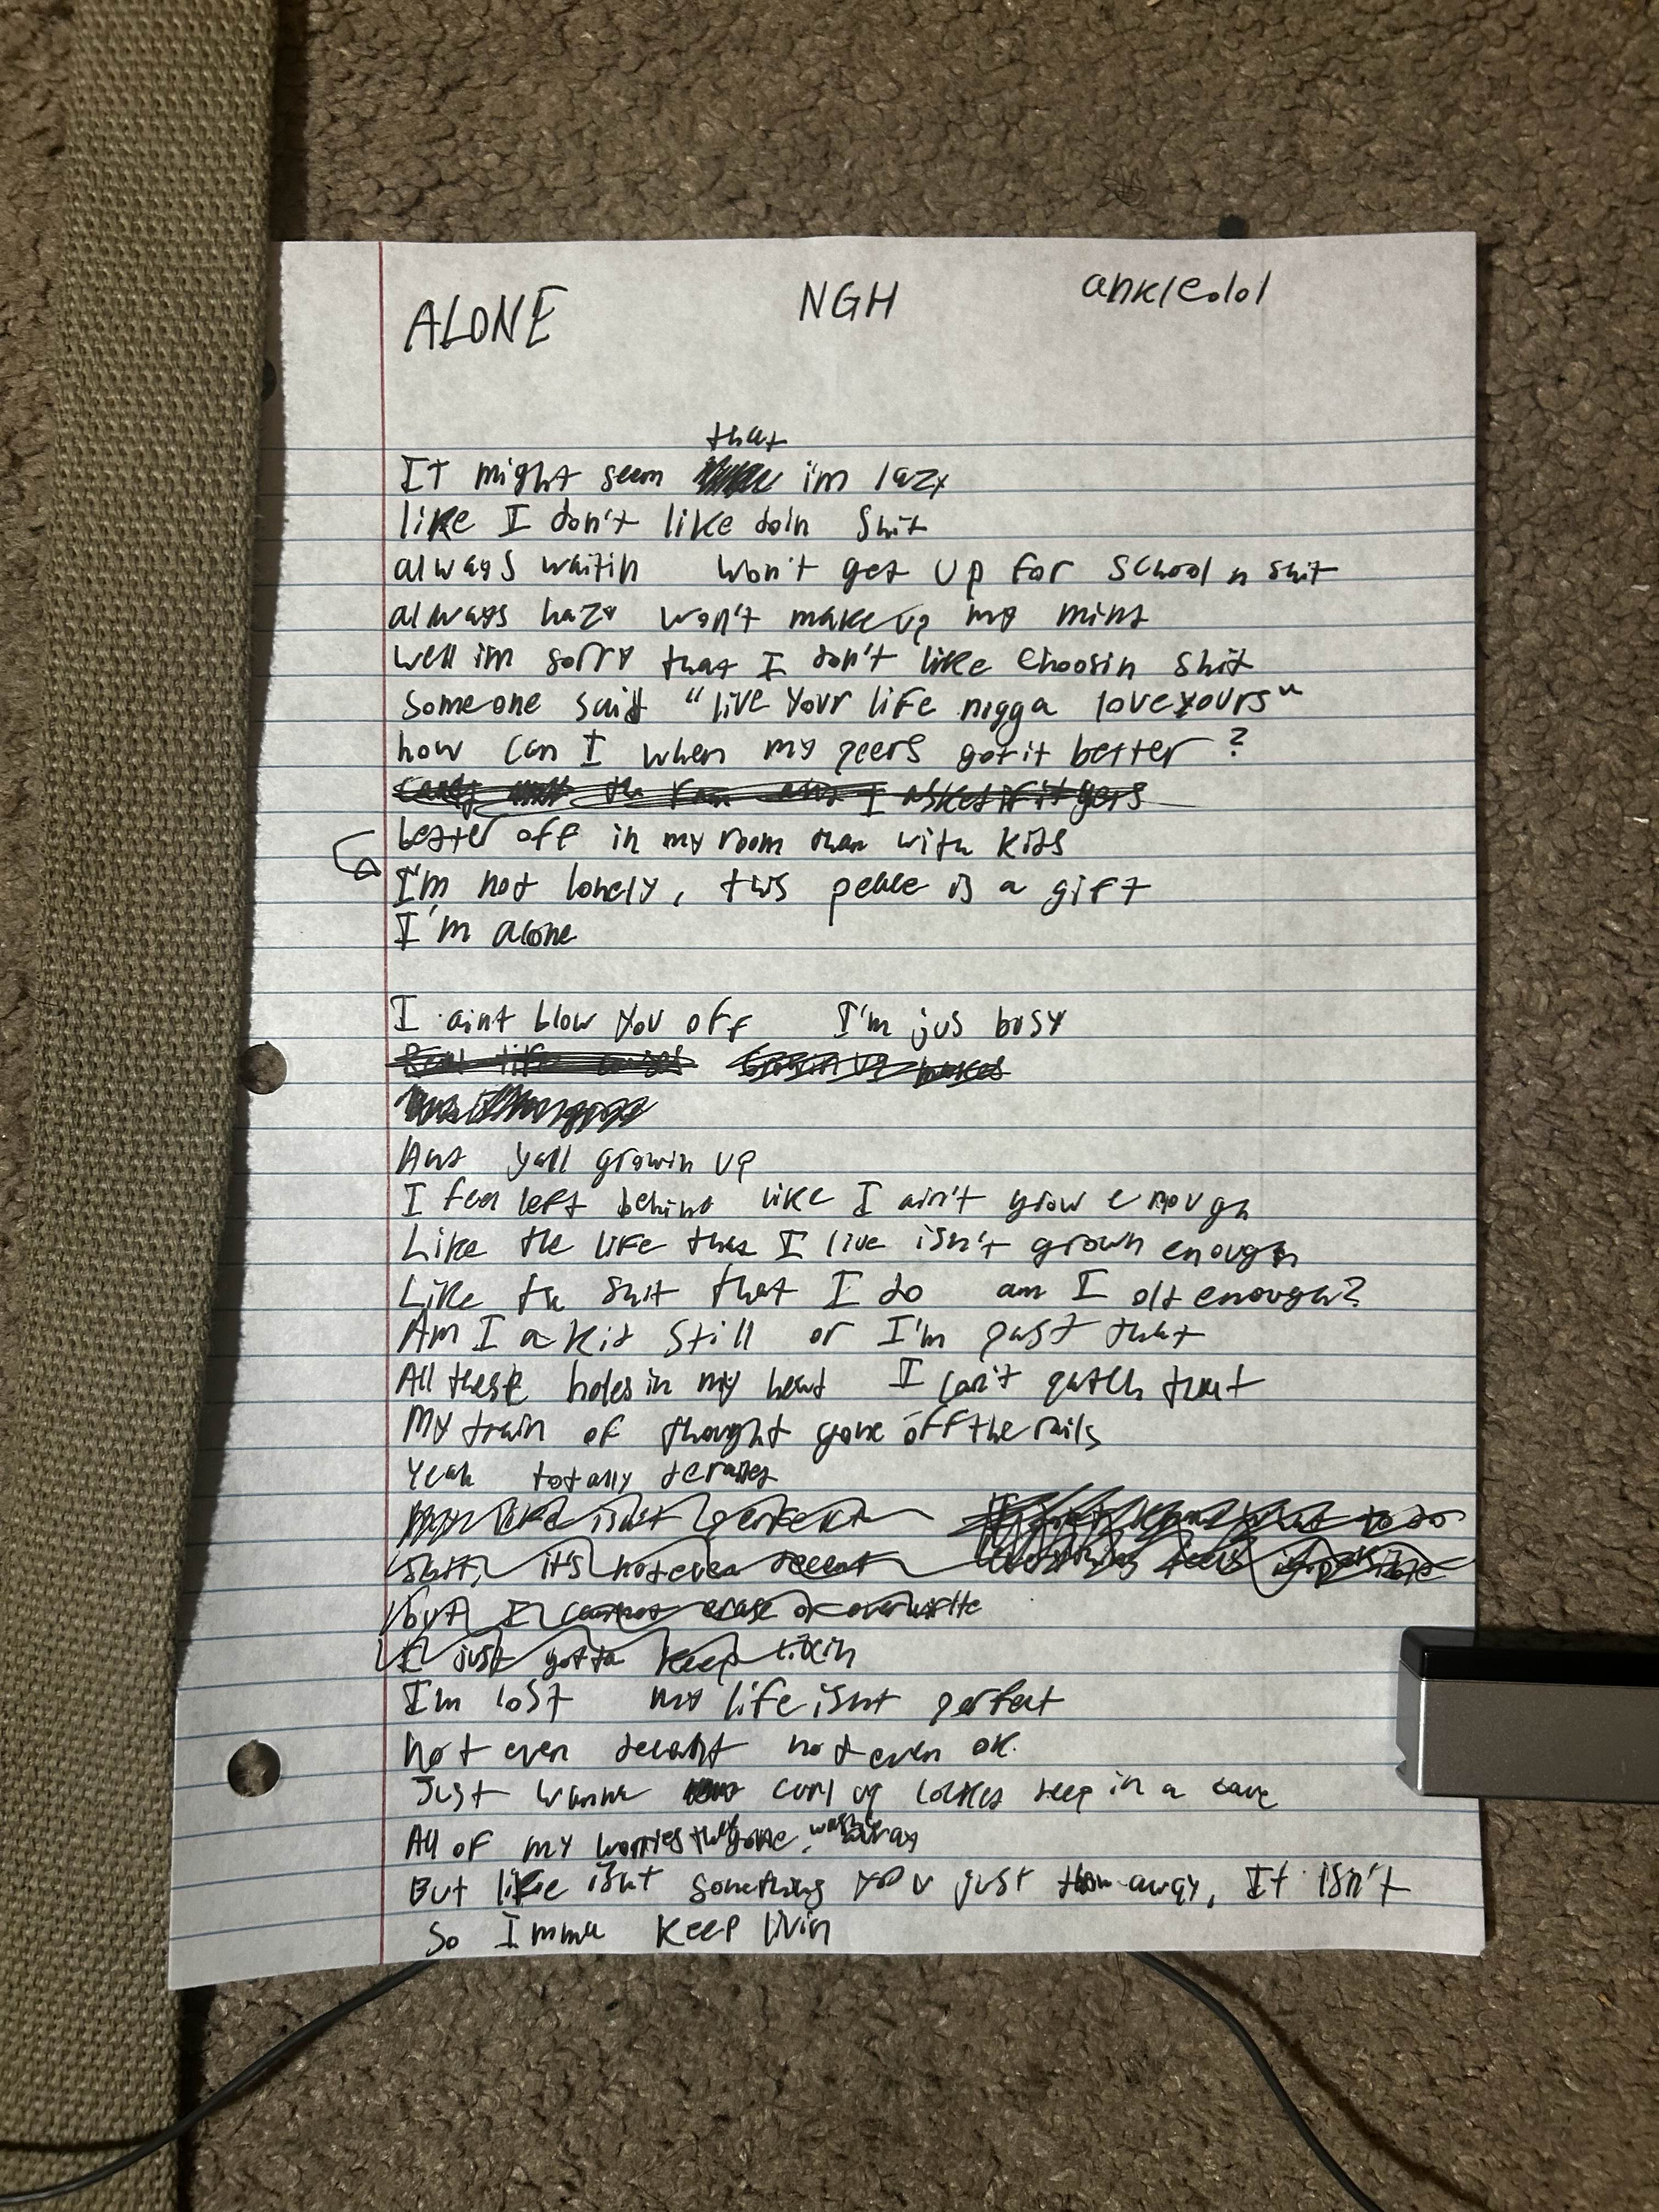 ALONE NGH ankle.lol
that
IT might seem im lazy
like I don't like doin shit
always waitin won't get up for school n shit
always hazy won't make up my mind
well im sorry that I don't like choosin shit
someone said "live your life nigga love yours"
how can I when my peers got it better?
the I asked if it gets
better off in my room than with kids
I'm not lonely, this peace is a gift
I'm alone
I aint blow you off I'm jus busy
Real life
And yall growin up
I feel left behind like I ain't grow enough
Like the life that I live isn't grown enough
Like the shit that I do am I old enough?
Am I a kid still or I'm past that
All these holes in my head I can't patch that
My train of thought gone off the rails
Yeah totally derailed
life isn't perfect to do
shit, it's not even decent feels impossible
but I cannot erase or overwrite
I just gotta keep
I'm lost my life isnt perfect
Not even decent not even ok.
Just wanna curl up locked deep in a cave
All of my worries they gone, washed away
But life isnt something you just throw away, It isn't
So Imma keep livin